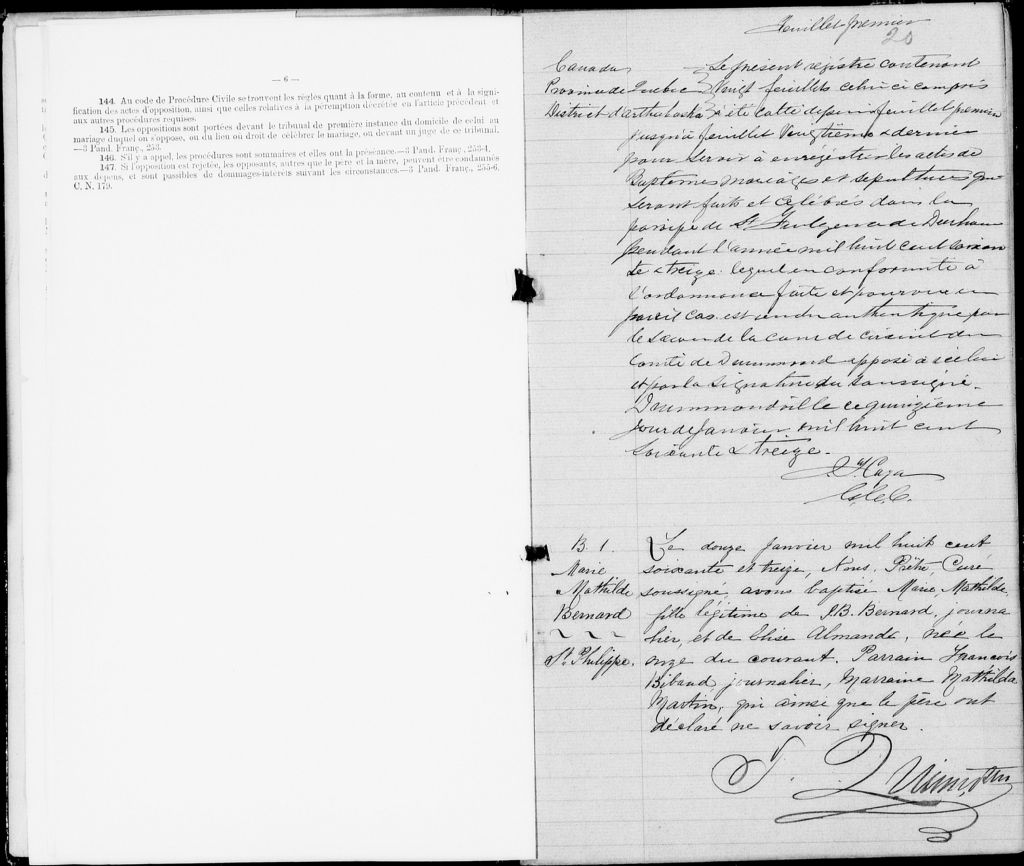 — 6 —
144. Au code de Procédure Civile se trouvent les règles quant à la forme, au contenu et à la signi-
fication des actes d'opposition, ainsi que celles relatives à la péremption décrétée en l'article précédent et
aux autres procédures requises.
145. Les oppositions sont portées devant le tribunal de première instance du domicile de celui au
mariage duquel on s'oppose, ou du lieu où droit de célébrer le mariage, ou devant un juge de ce tribunal.
—3 Pand. Franç., 253.
146. S'il y a appel, les procédures sont sommaires et elles ont la préséance.—3 Pand. Franç., 253-4.
147. Si l'opposition est rejetée, les opposants, autres que le père et la mère, peuvent être condamnés
aux dépens, et sont passibles de dommages-intérêts suivant les circonstances.—3 Pand. Franç., 255-6.
C. N. 179.
Feuillet premier
20
Canada
Province de Quebec
District d'Arthabaska
Le présent registre contenant
Vingt feuillets celui ci compris
a été Cotté depuis feuillet premier
jusqu'à feuillet Vingtième & dernier
pour servir à enrégistrer les actes de
Baptemes mariages et sepultures qui
seront faits et célébrés dans la
paroisse de St Fulgence de Durham
pendant l'année mil huit cent soixan
te & treize. lequel en conformité à
l'ordonnance faite et pourvue en
pareil cas est rendu authentique par
le sceau de la cour de circuit du
Comté de Drummond apposé à icelui
et par la signature du soussigné.
Drummondville ce quinzième
jour de Janvier mil huit cent
Soixante & treize.
C. C. C.
B. 1.
Marie
Mathilde
Bernard
St. Philippe.
Le douze Janvier mil huit cent
soixante et treize, Nous, Prêtre Curé
soussigné, avons baptisé Marie Mathilde,
fille légitime de J.B. Bernard, journa
lier, et de Elise Almanda, née le
onze du courant. Parrain François
Bibaud, journalier, Marraine Mathilda
Martin, qui ainsi que le père ont
déclaré ne savoir signer.